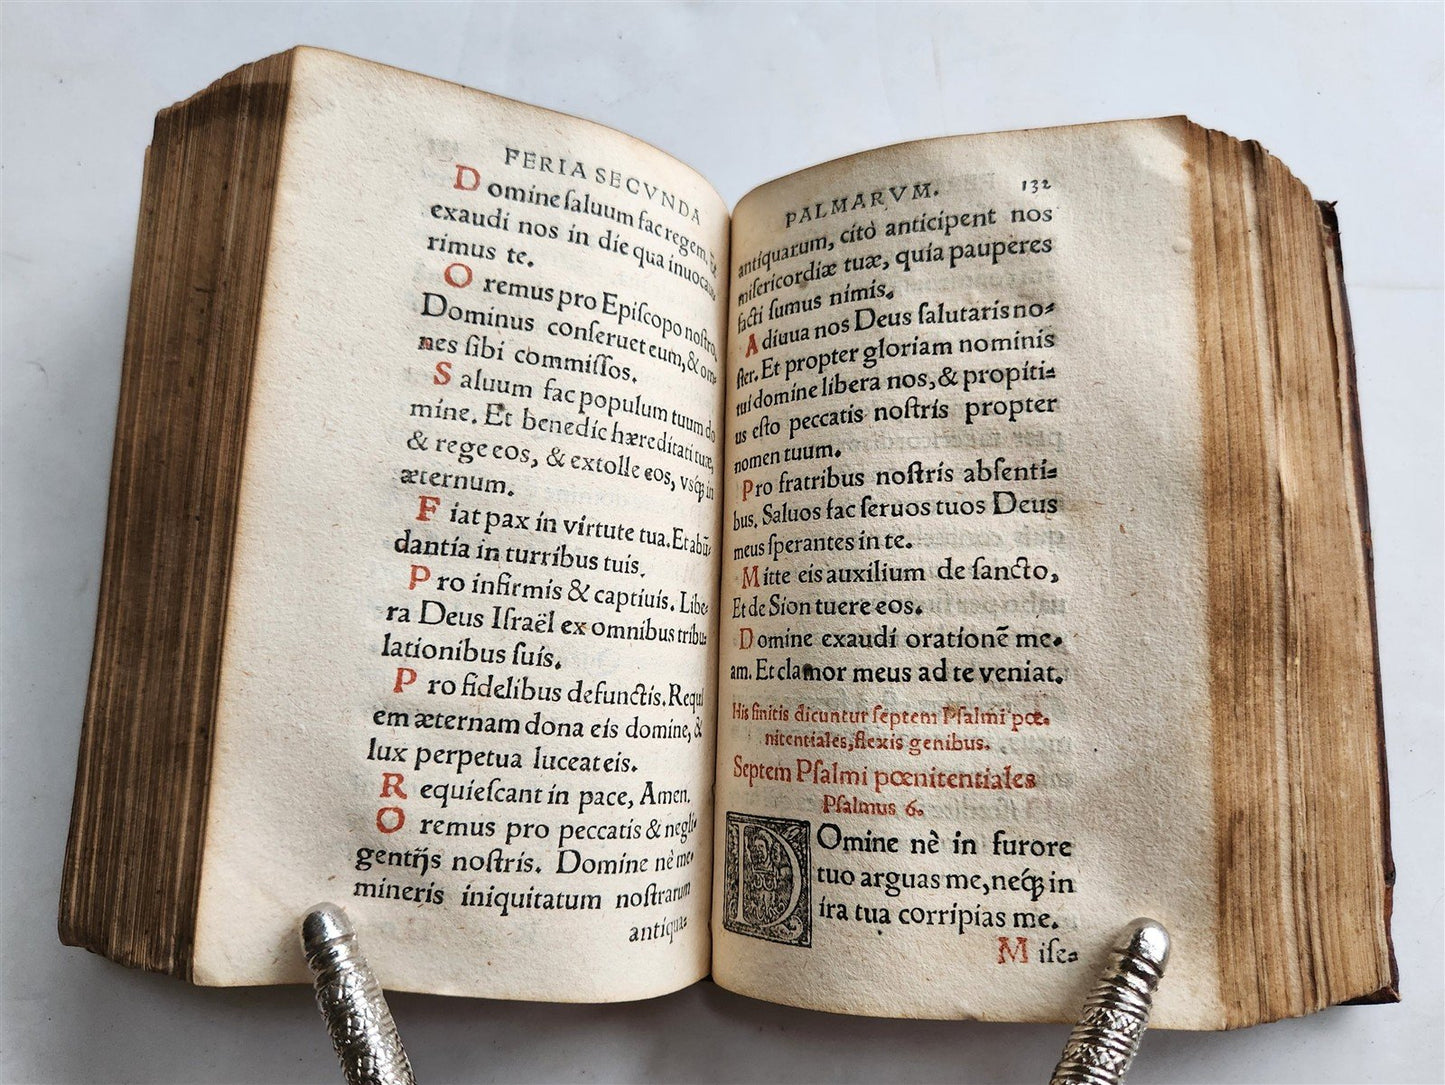 FERIA SECVNDA
Domine ſaluum fac regem. Et
exaudi nos in die qua inuocaue
rimus te.
Oremus pro Epiſcopo noſtro,
Dominus conſeruet eum, & om⸗
nes ſibi commiſſos.
Saluum fac populum tuum do
mine. Et benedic hæreditati tuæ,
& rege eos, & extolle eos, vſq́ꝫ in
æternum.
Fiat pax in virtute tua. Et abũ⸗
dantia in turribus tuis.
Pro infirmis & captiuis. Libe⸗
ra Deus Iſraël ex omnibus tribu⸗
lationibus ſuis.
Pro fidelibus defunctis. Requi
em æternam dona eis domine, &
lux perpetua luceat eis.
Requieſcant in pace, Amen.
Oremus pro peccatis & negli⸗
gentijs noſtris. Domine nè me⸗
mineris iniquitatum noſtrarum
antiqua⸗
PALMARVM. 132
antiquarum, citò anticipent nos
miſericordiæ tuæ, quia pauperes
facti ſumus nimis.
Adiuua nos Deus ſalutaris no⸗
ſter. Et propter gloriam nominis
tui domine libera nos, & propiti⸗
us eſto peccatis noſtris propter
nomen tuum.
Pro fratribus noſtris abſenti⸗
bus. Saluos fac ſeruos tuos Deus
meus ſperantes in te.
Mitte eis auxilium de ſancto,
Et de Sion tuere eos.
Domine exaudi orationẽ me⸗
am. Et clamor meus ad te veniat.
His finitis dicuntur ſeptem Pſalmi pœ⸗
nitentiales, flexis genibus.
Septem Pſalmi pœnitentiales
Pſalmus 6.
DOmine nè in furore
tuo arguas me, neq́ꝫ in
ira tua corripias me.
Miſe⸗